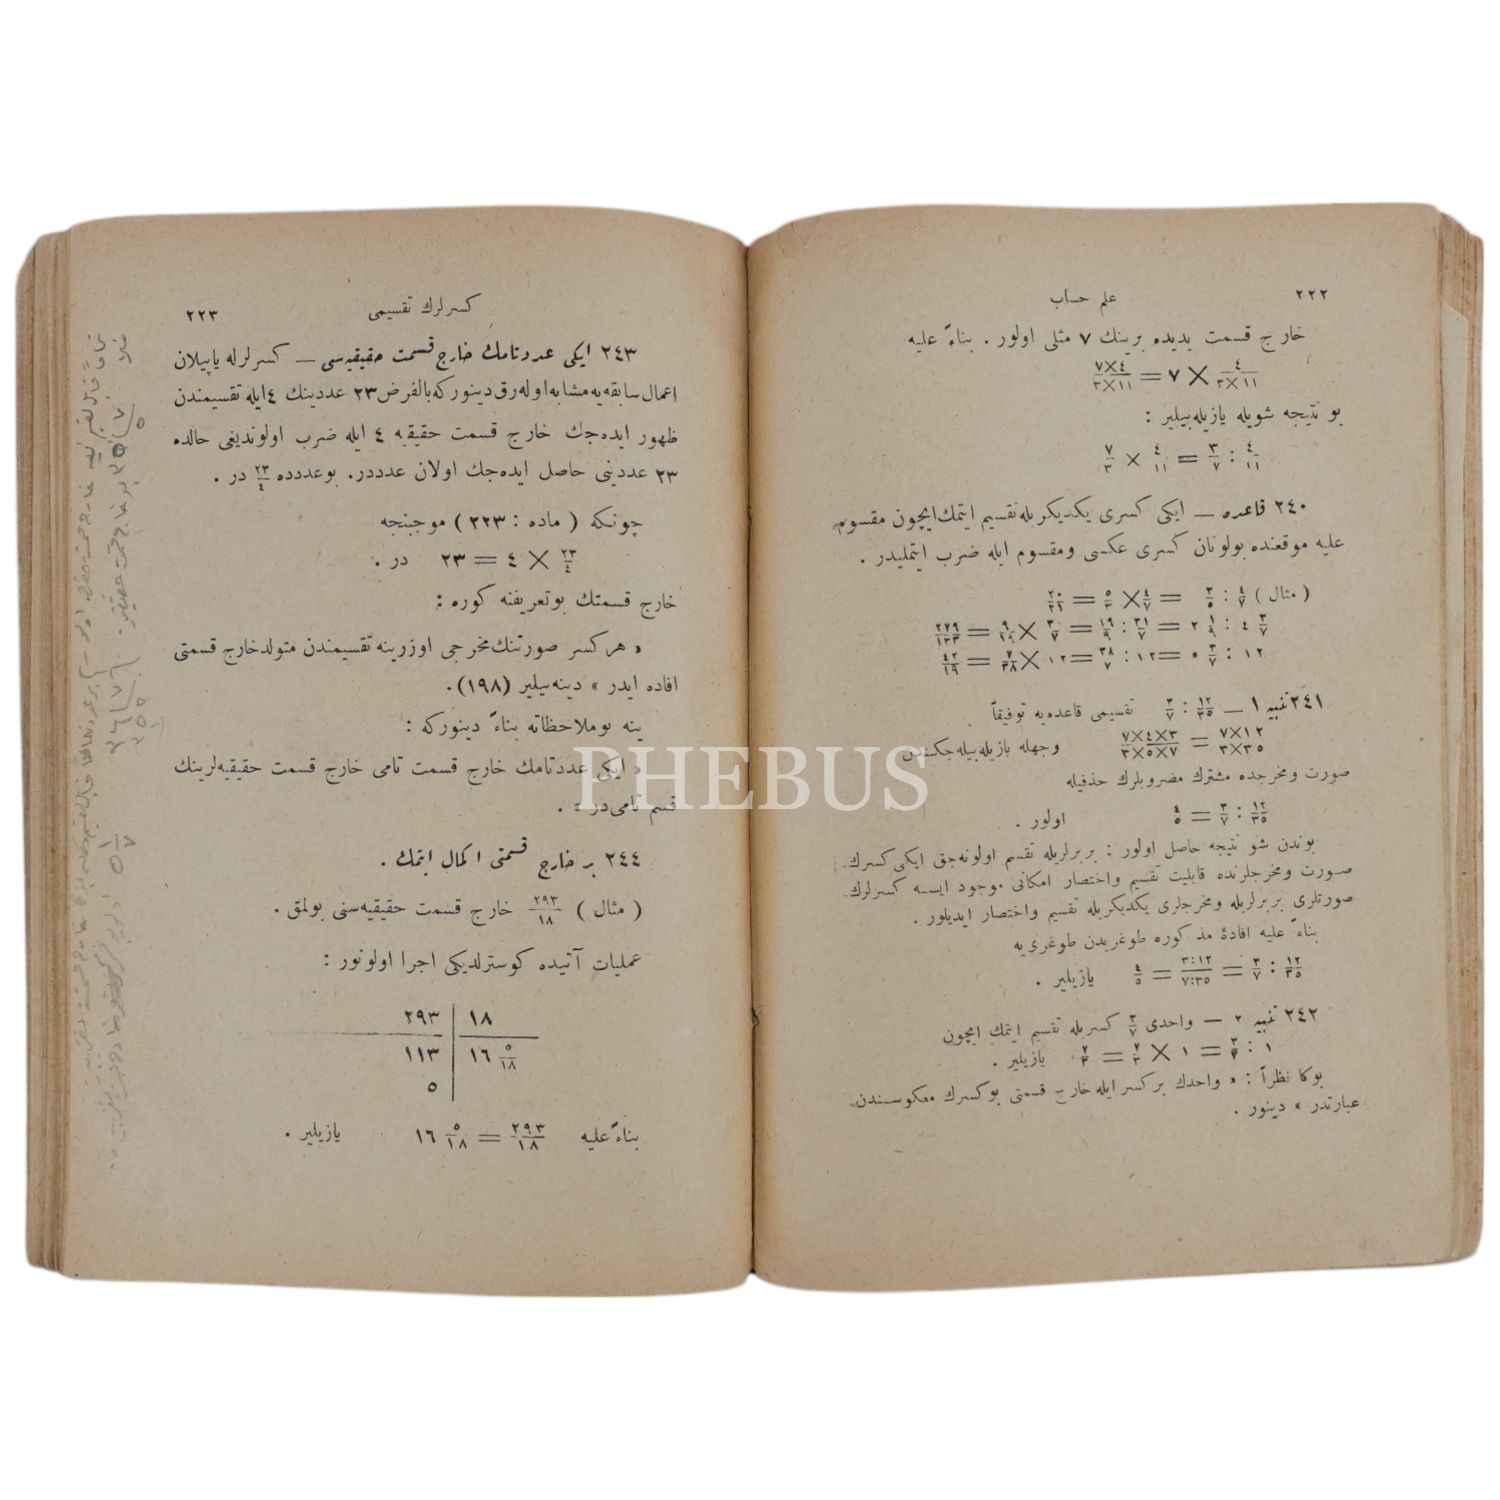 ٢٢٢ علم حساب
خارج قسمت يديده برينك ٧ مثلى اولور . بناءً عليه
٤/٣×١١ × ٧ = ٧×٤/٣×١١
بو نتيجه شويله يازيله بيلير :
٤/١١ : ٣/٧ = ٤/١١ × ٧/٣
٢٤٠ قاعده — ايكى كسرى يكديكريله تقسيم ايتمك ايچون مقسوم
عليه موقعنده بولونان كسرى عكسى ومقسوم ايله ضرب ايتمليدر .
( مثال ) ٤/٧ : ٣/٥ = ٤/٧ × ٥/٣ = ٢٠/٢١
٤ ٣/٧ : ٢ ١/٩ = ٣١/٧ : ١٩/٩ = ٣١/٧ × ٩/١٩ = ٢٧٩/١٣٣
١٢ : ٥ ٣/٧ = ١٢ : ٣٨/٧ = ١٢ × ٧/٣٨ = ٤٢/١٩
٢٤١ تنبيه ١ — ١٢/٣٥ : ٣/٧ تقسيمى قاعده يه توفيقاً
١٢×٧/٣٥×٣ = ٣×٤×٧/٧×٥×٣ وجهله يازيله بيله جكندن
صورت ومخرجده مشترك مضروبلرك حذفيله
١٢/٣٥ : ٣/٧ = ٤/٥ اولور .
بوندن شو نتيجه حاصل اولور : بربرلريله تقسيم اولونه جق ايكى كسرك
صورت ومخرجلرنده قابليت تقسيم واختصار امكانى موجود ايسه كسرلرك
صورتلرى بربرلريله ومخرجلرى يكديكريله تقسيم واختصار ايديلور .
بناءً عليه افادۀ مذكوره طوغريدن طوغرى يه
١٢/٣٥ : ٣/٧ = ١٢:٣/٣٥:٧ = ٤/٥ يازيلير .
٢٤٢ تنبيه ٢ — واحدى ٣/٧ كسريله تقسيم ايتمك ايچون
١ : ٣/٧ = ١ × ٧/٣ = ٧/٣ يازيلير .
بوكا نظراً : « واحدك بر كسر ايله خارج قسمتى بو كسرك معكوسندن
عبارتدر » دينور .
كسرلرك تقسيمى ٢٢٣
٢٤٣ ايكى عدد تامك خارج قسمت حقيقيه سى — كسرلرله ياپيلان
اعمال سابقه يه مشابه اوله رق دينور كه بالفرض ٢٣ عددينك ٤ ايله تقسيمندن
ظهور ايده جك خارج قسمت حقيقيه ٤ ايله ضرب اولونديغى حالده
٢٣ عددينى حاصل ايده جك اولان عدددر. بو عددده ٢٣/٤ در .
چونكه ( ماده : ٢٢٣ ) موجبنجه
٢٣/٤ × ٤ = ٢٣ در .
خارج قسمتك بو تعريفنه كوره :
« هر كسر صورتنك مخرجى اوزرينه تقسيمندن متولد خارج قسمتى
افاده ايدر » دينه بيلير (١٩٨).
ينه بو ملاحظاته بناءً دينور كه :
« ايكى عدد تامك خارج قسمت تامى خارج قسمت حقيقيه لرينك
قسم تامى در » .
٢٤٤ بر خارج قسمتى اكمال ايتمك .
( مثال ) ٢٩٣/١٨ خارج قسمت حقيقيه سنى بولمق .
عمليات آتيده كوسترلديكى اجرا اولونور :
٢٩٣ | ١٨
١١٣ | ١٦ ٥/١٨
٥
بناءً عليه ٢٩٣/١٨ = ١٦ ٥/١٨ يازيلير .
PHEBUS